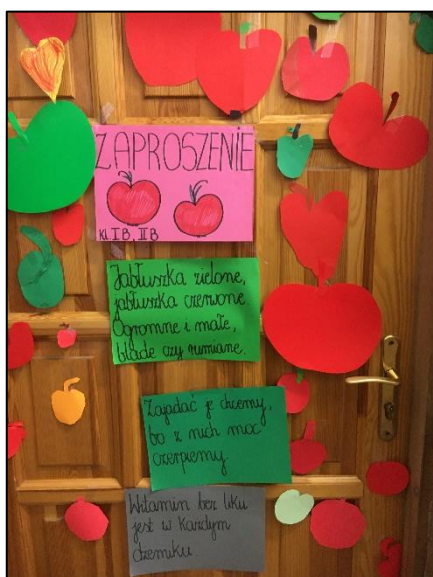 ZAPROSZENIE
kl. I B, II B
Jabłuszka zielone,
jabłuszka czerwone.
Ogromne i małe,
blade czy rumiane.
Zajadać je chcemy,
bo z nich moc
czerpiemy.
Witamin bez liku
jest w każdym
dzemiku.